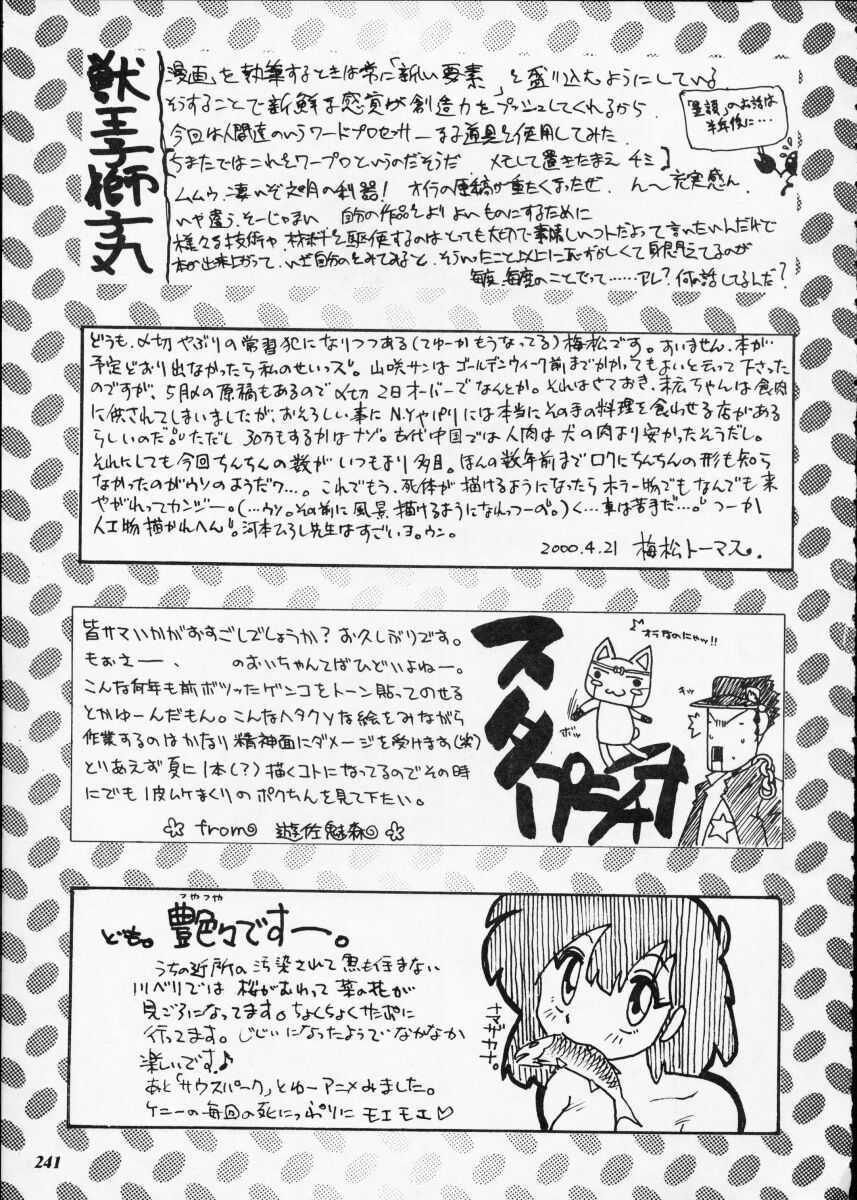 獣王子獅子丸
「漫画」を執筆するときは常に「新しい要素」を盛り込むようにしている
そうすることで新鮮な感覚が創造力をプッシュしてくれるから.
今回は人間達のいうワードプロセッサーなる道具を使用してみた.
[ちまたではこれをワープロというのだそうだ メモして置きたまえ チミ]
ムムウ、凄いぞ文明の利器! オイラの原稿が重たくなったぜ. ん〜充実感ん.
いや違う、そーじゃない 自分の作品をよりよいものにするために
様々な技術や材料を駆使するのはとっても大切で素晴しいコトだよって言いたいんだけど
本が出来上がって、いざ自分のをみてみると、そういったこと以上に恥ずかしくて身悶えてるのが
毎度、毎度のことでって……アレ? 何の話してるんだ?
のお話は
半年後に…
どうも、〆切やぶりの常習犯になりつつある(てゅーかもうなってる)梅松です。すいません、本が…
予定どおり出なかったら私のせいっス。山咲サンはゴールデンウィーク前までかかってもよいと云って下さった
のですが、5月〆の原稿もあるので〆切2日オーバーでなんとか。それはさておき、ちゃんは食肉
に供されてしまいましたが、おそろしい事にN.Yやパリには本当にそのまの料理を食わせる店がある
らしいのだ。ただし30万もするかはナゾ。古代中国では人肉は犬の肉より安かったそうだし。
それにしても今回ちんちんの数がいつもより多目。ほんの数年前までロクにちんちんの形も知ら
なかったのがウソのようだワ…。これでもう、死体が描けるようになったらホラー物でもなんでも来
やがれってカンジー。(…ウソ。その前に風景描けるようになれっつーの。)く…車は苦手だ…。つーか
人工物描かれへん。河本ひろし先生はすごいヨ。ウン。
2000.4.21 梅松トーマス。
皆サマいかがおすごしでしょうか? お久しぶりです。
もぉさー、 のおいちゃんてばひどいよねー。
こんな何年も前ボツったゲンコをトーン貼ってのせる
とかゆーんだもん。こんなヘタクソな絵をみながら
作業するのはかなり精神面にダメージを受けます(笑)
とりあえず夏に1本(?)描くコトになってるのでその時
にでも1皮ムケまくりのボクちんを見て下たい。
☆from 遊佐魅森 ☆
スタープラチナ
♪オラなのにャッ!!
ボッ
ども。艶々ですー。
つやつや
うちの近所の汚染されて魚も住まない
川べりでは 桜がおわって菜の花が
見ごろになってます。ちょくちょくサンポに
行ってます。じじぃになったようでなかなか
楽しいです♪
あと「サウスパーク」とゆーアニメみました。
ケニーの毎回の死にっぷりに モエモエ♡
ナマザカナ。
241